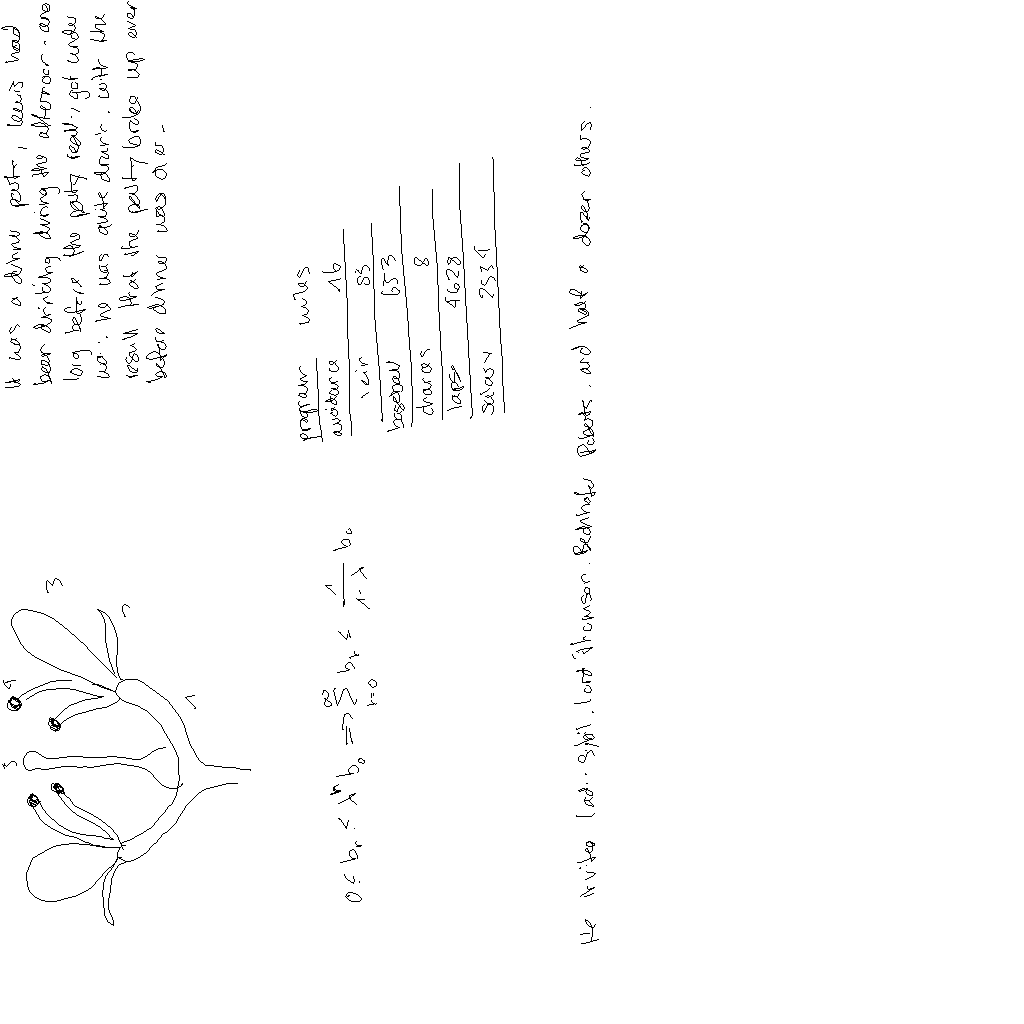 It was a dinner party, Lewis had
been drinking during the afternoon and
long before the party really got under
way he was quite drunk, with the
result that the party broke up even
before dinner was over.
3
2
4
1
5
program miles
avoidance 16
weir 83
baseball 653
chances 8
lapse 4628
salary 2534
0 ≤ bₙ ≤ λⁿ b₀ ⇒ ∑_{n=0}^{∞} bₙ ≤ 1/(1-λ) b₀
He invited Lady Sybil, Lord Thomson, Bechhofer Roberts, and half a dozen others.